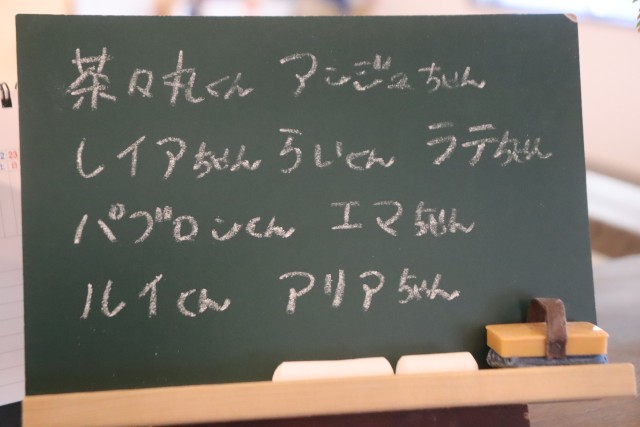 茶々丸くん アンジュちゃん
レイアちゃん らいくん ラテちゃん
パブロンくん エマちゃん
ルイくん アリアちゃん